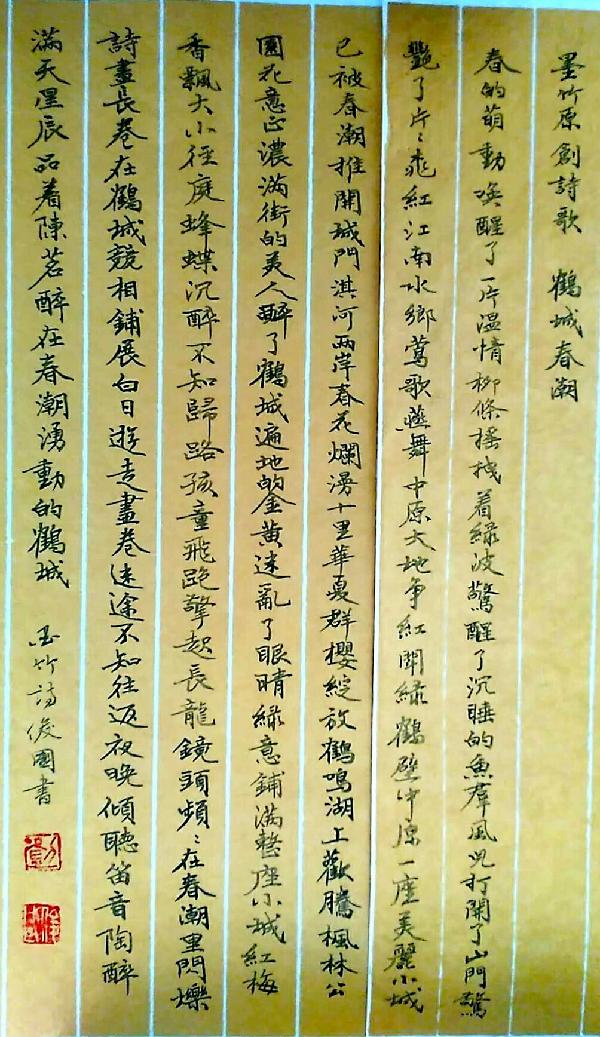 墨竹原創詩歌 鶴城春潮
春的萌動喚醒了一片溫情柳條搖栈着綠波驚醒了沉睡的魚群風兒打開了山門驚
艷了片々飛紅江南水鄉鶯歌燕舞中原大地争紅鬧綠鶴壁中原一座美麗小城
已被春潮推開城門淇河兩岸春花爛漫十里華夏群櫻綻放鶴鳴湖上歡騰楓林公
園花意正濃滿街的美人醉了鶴城遍地的金黄迷亂了眼睛綠意鋪滿整座小城紅梅
香飄大小徑庭蜂蝶沉醉不知歸路孩童飛跑擎起長龍鏡頭頻々在春潮里閃爍
詩畫長卷在鶴城競相鋪展白日遊走畫卷迷途不知往返夜晚傾聽笛音陶醉
滿天星辰品着陳茗醉在春潮湧動的鶴城 墨竹詩俊國書